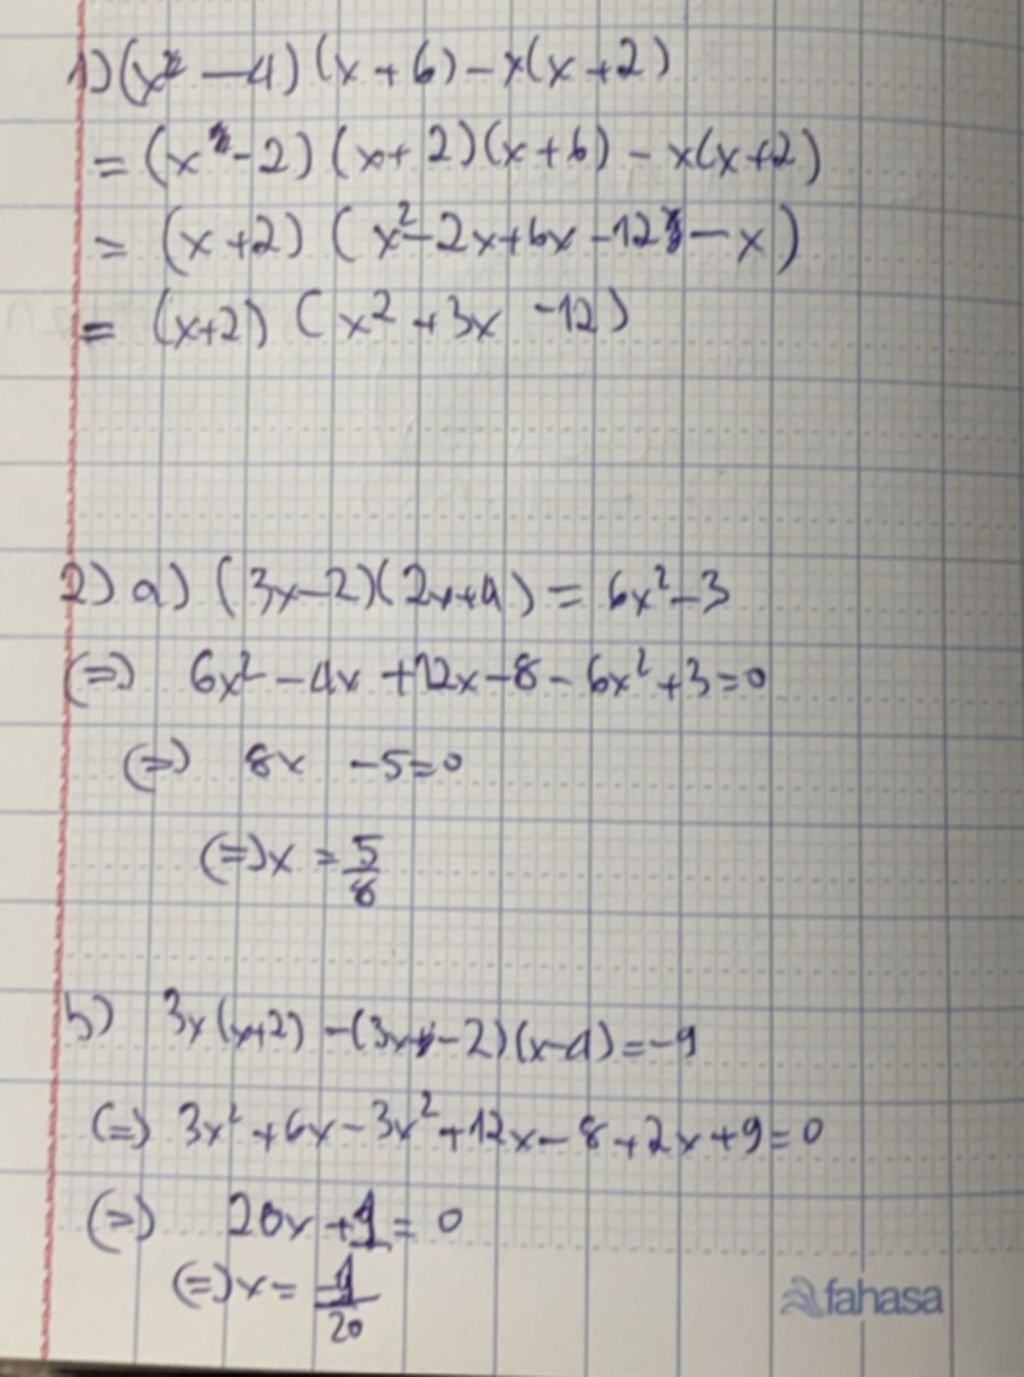 1) (x² - 4)(x + 6) - x(x + 2)
= (x - 2)(x + 2)(x + 6) - x(x + 2)
= (x + 2)(x² - 2x + 6x - 12 - x)
= (x + 2)(x² + 3x - 12)
2) a) (3x - 2)(2x + 4) = 6x² - 3
(=) 6x² - 4x + 12x - 8 - 6x² + 3 = 0
(=) 8x - 5 = 0
(=) x = 5/8
b) 3x(x + 2) - (3x - 2)(x - 4) = -9
(=) 3x² + 6x - 3x² + 12x - 8 + 2x + 9 = 0
(=) 20x + 1 = 0
(=) x = -1/20
fahasa